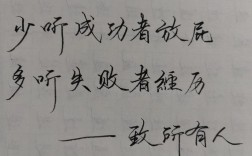 少听成功者放屁
多听失败者经历
——致所有人